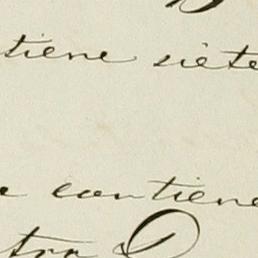 tiene siete
e contiene
tra D